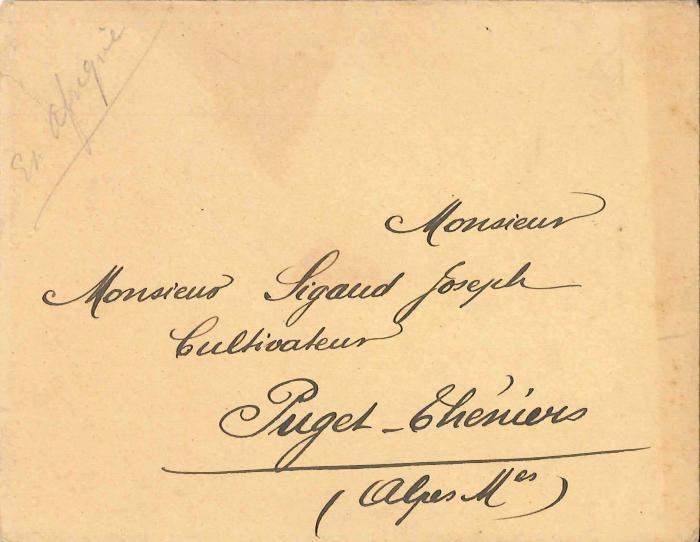 En Afrique
Monsieur
Monsieur Sigaud Joseph
Cultivateur
Puget-Théniers
(Alpes Mes)